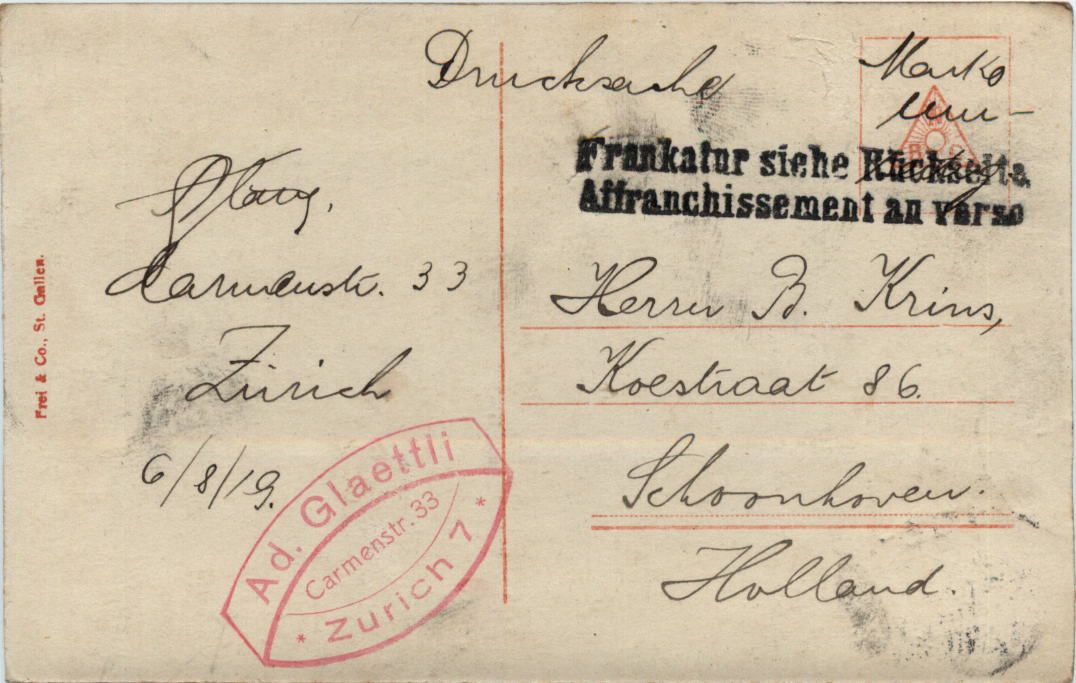 Drucksache
Marke
um-
Frankatur siehe Rückseite
Affranchissement au verso
Carmenstr. 33
Zürich
6/8/19.
Herrn B. Krins,
Koestraat 86.
Schoonhoven.
Holland.
Ad. Glaettli
Carmenstr. 33
* Zurich 7 *
Frei & Co., St. Gallen.